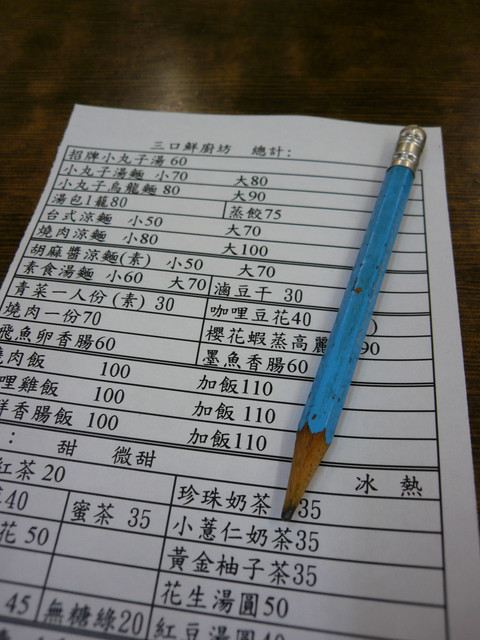 三口鮮廚坊 總計:
招牌小丸子湯 60
小丸子湯麵 小70 大80
小丸子烏龍麵 80 大90
湯包1籠80 蒸餃75
台式涼麵 小50 大70
燒肉涼麵 小80 大100
胡麻醬涼麵(素) 小50 大70
素食湯麵 小60 大70 滷豆干 30
青菜一人份(素) 30 咖哩豆花40
燒肉一份70 櫻花蝦蒸高麗 90
飛魚卵香腸60 墨魚香腸60
燒肉飯 100 加飯110
哩雞飯 100 加飯 110
香腸飯 100 加飯110
: 甜 微甜 冰 熱
紅茶 20 珍珠奶茶 35
40 蜜茶 35 小薏仁奶茶35
花 50 黃金柚子茶35
花生湯圓50
45 無糖綠20 紅豆湯圓40